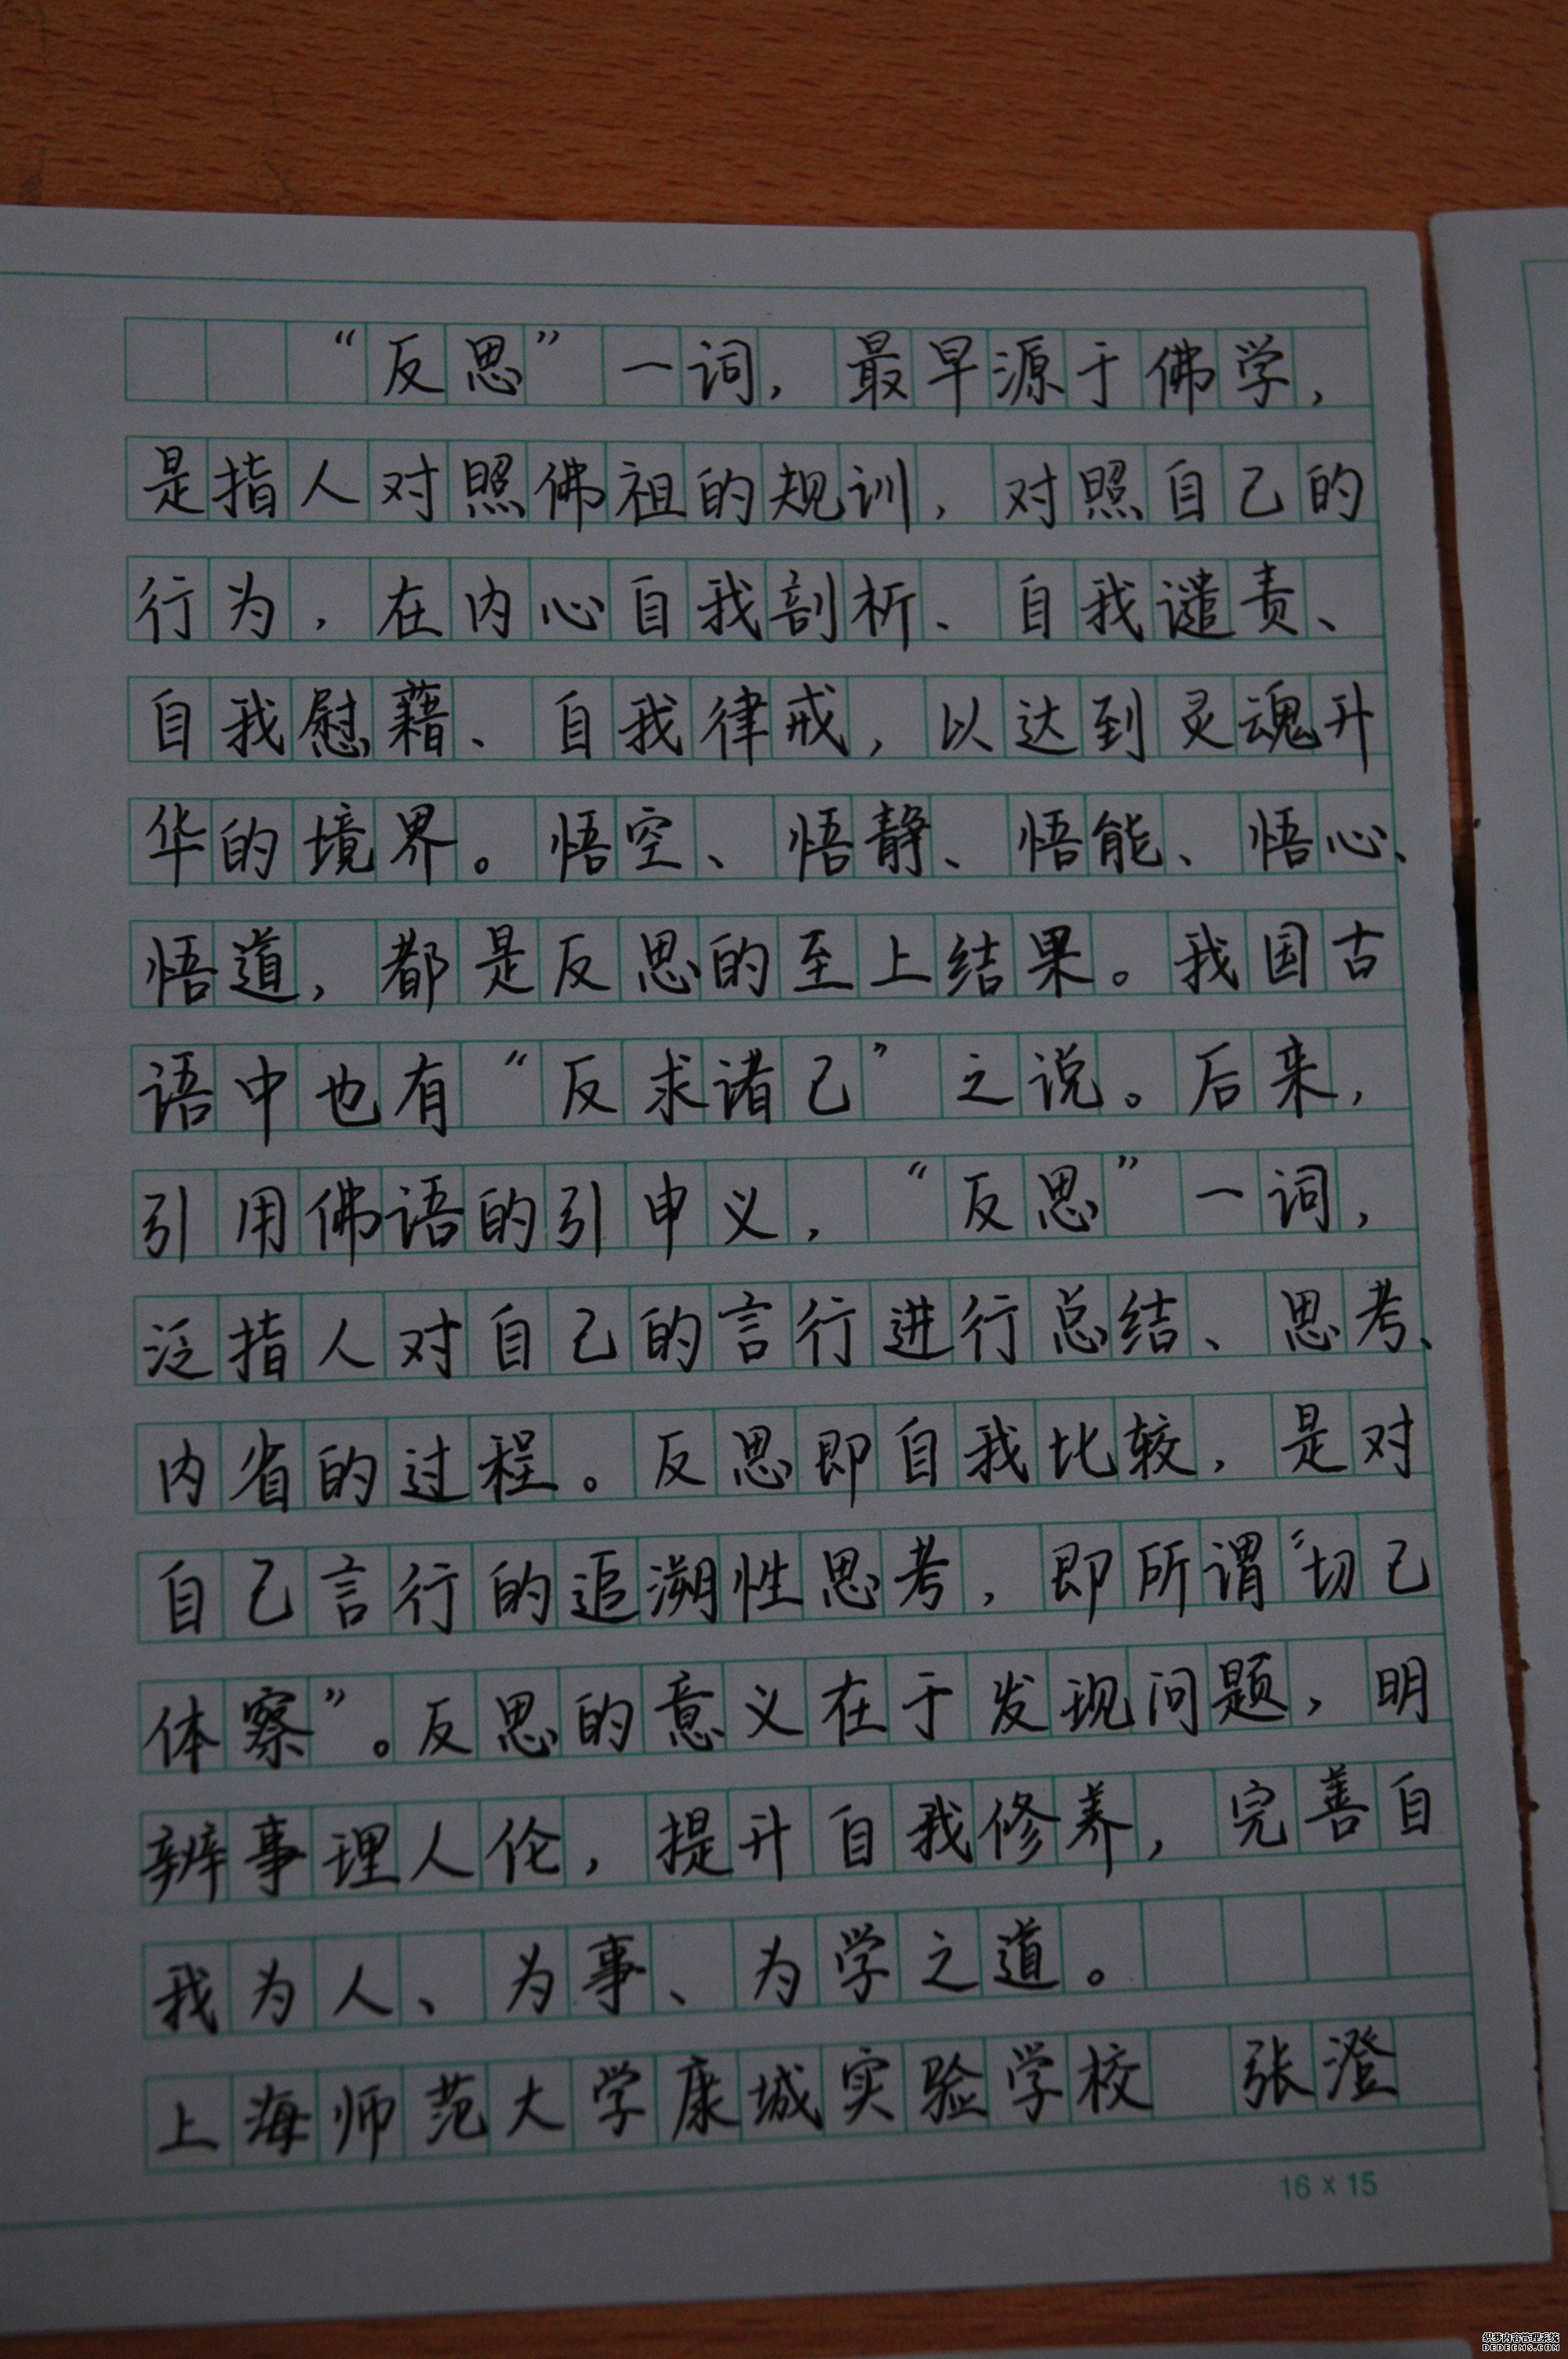 “反思”一词，最早源于佛学，
是指人对照佛祖的规训，对照自己的
行为，在内心自我剖析、自我谴责、
自我慰藉、自我律戒，以达到灵魂升
华的境界。悟空、悟静、悟能、悟心、
悟道，都是反思的至上结果。我国古
语中也有“反求诸己”之说。后来，
引用佛语的引申义，“反思”一词，
泛指人对自己的言行进行总结、思考、
内省的过程。反思即自我比较，是对
自己言行的追溯性思考，即所谓“切己
体察”。反思的意义在于发现问题，明
辨事理人伦，提升自我修养，完善自
我为人、为事、为学之道。
上海师范大学康城实验学校 张澄
16 x 15
织梦内容管理系统
DEDECMS.COM